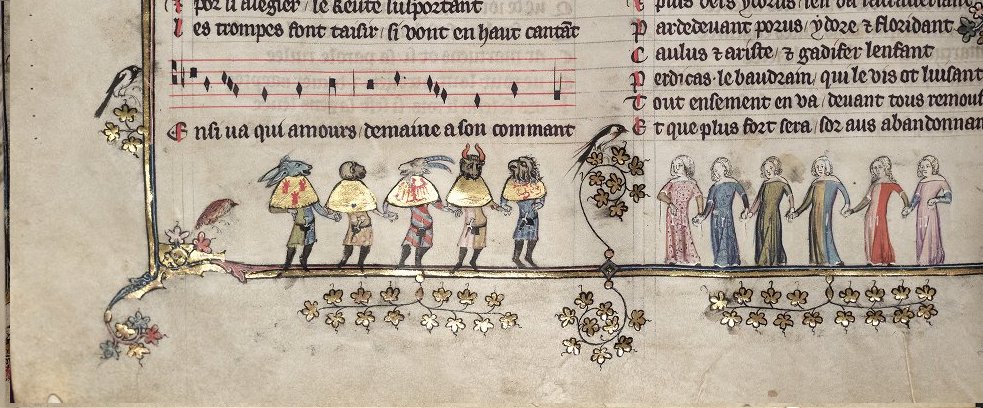 por li alegier / le keute
Les trompes font taisir / si vont en haut cantāt
Ensi ua qui amours / demaine a son commant
puis vers ydorus /
Pardedeuant porus / ydore ⁊ floridant
Caulus ⁊ ariste / ⁊ gadifer lenfant
Perdicas. le baudrain / qui le vis ot luisant
Tout ensement en va / deuant tous
Et que plus fort sera / sor aus abandonnan